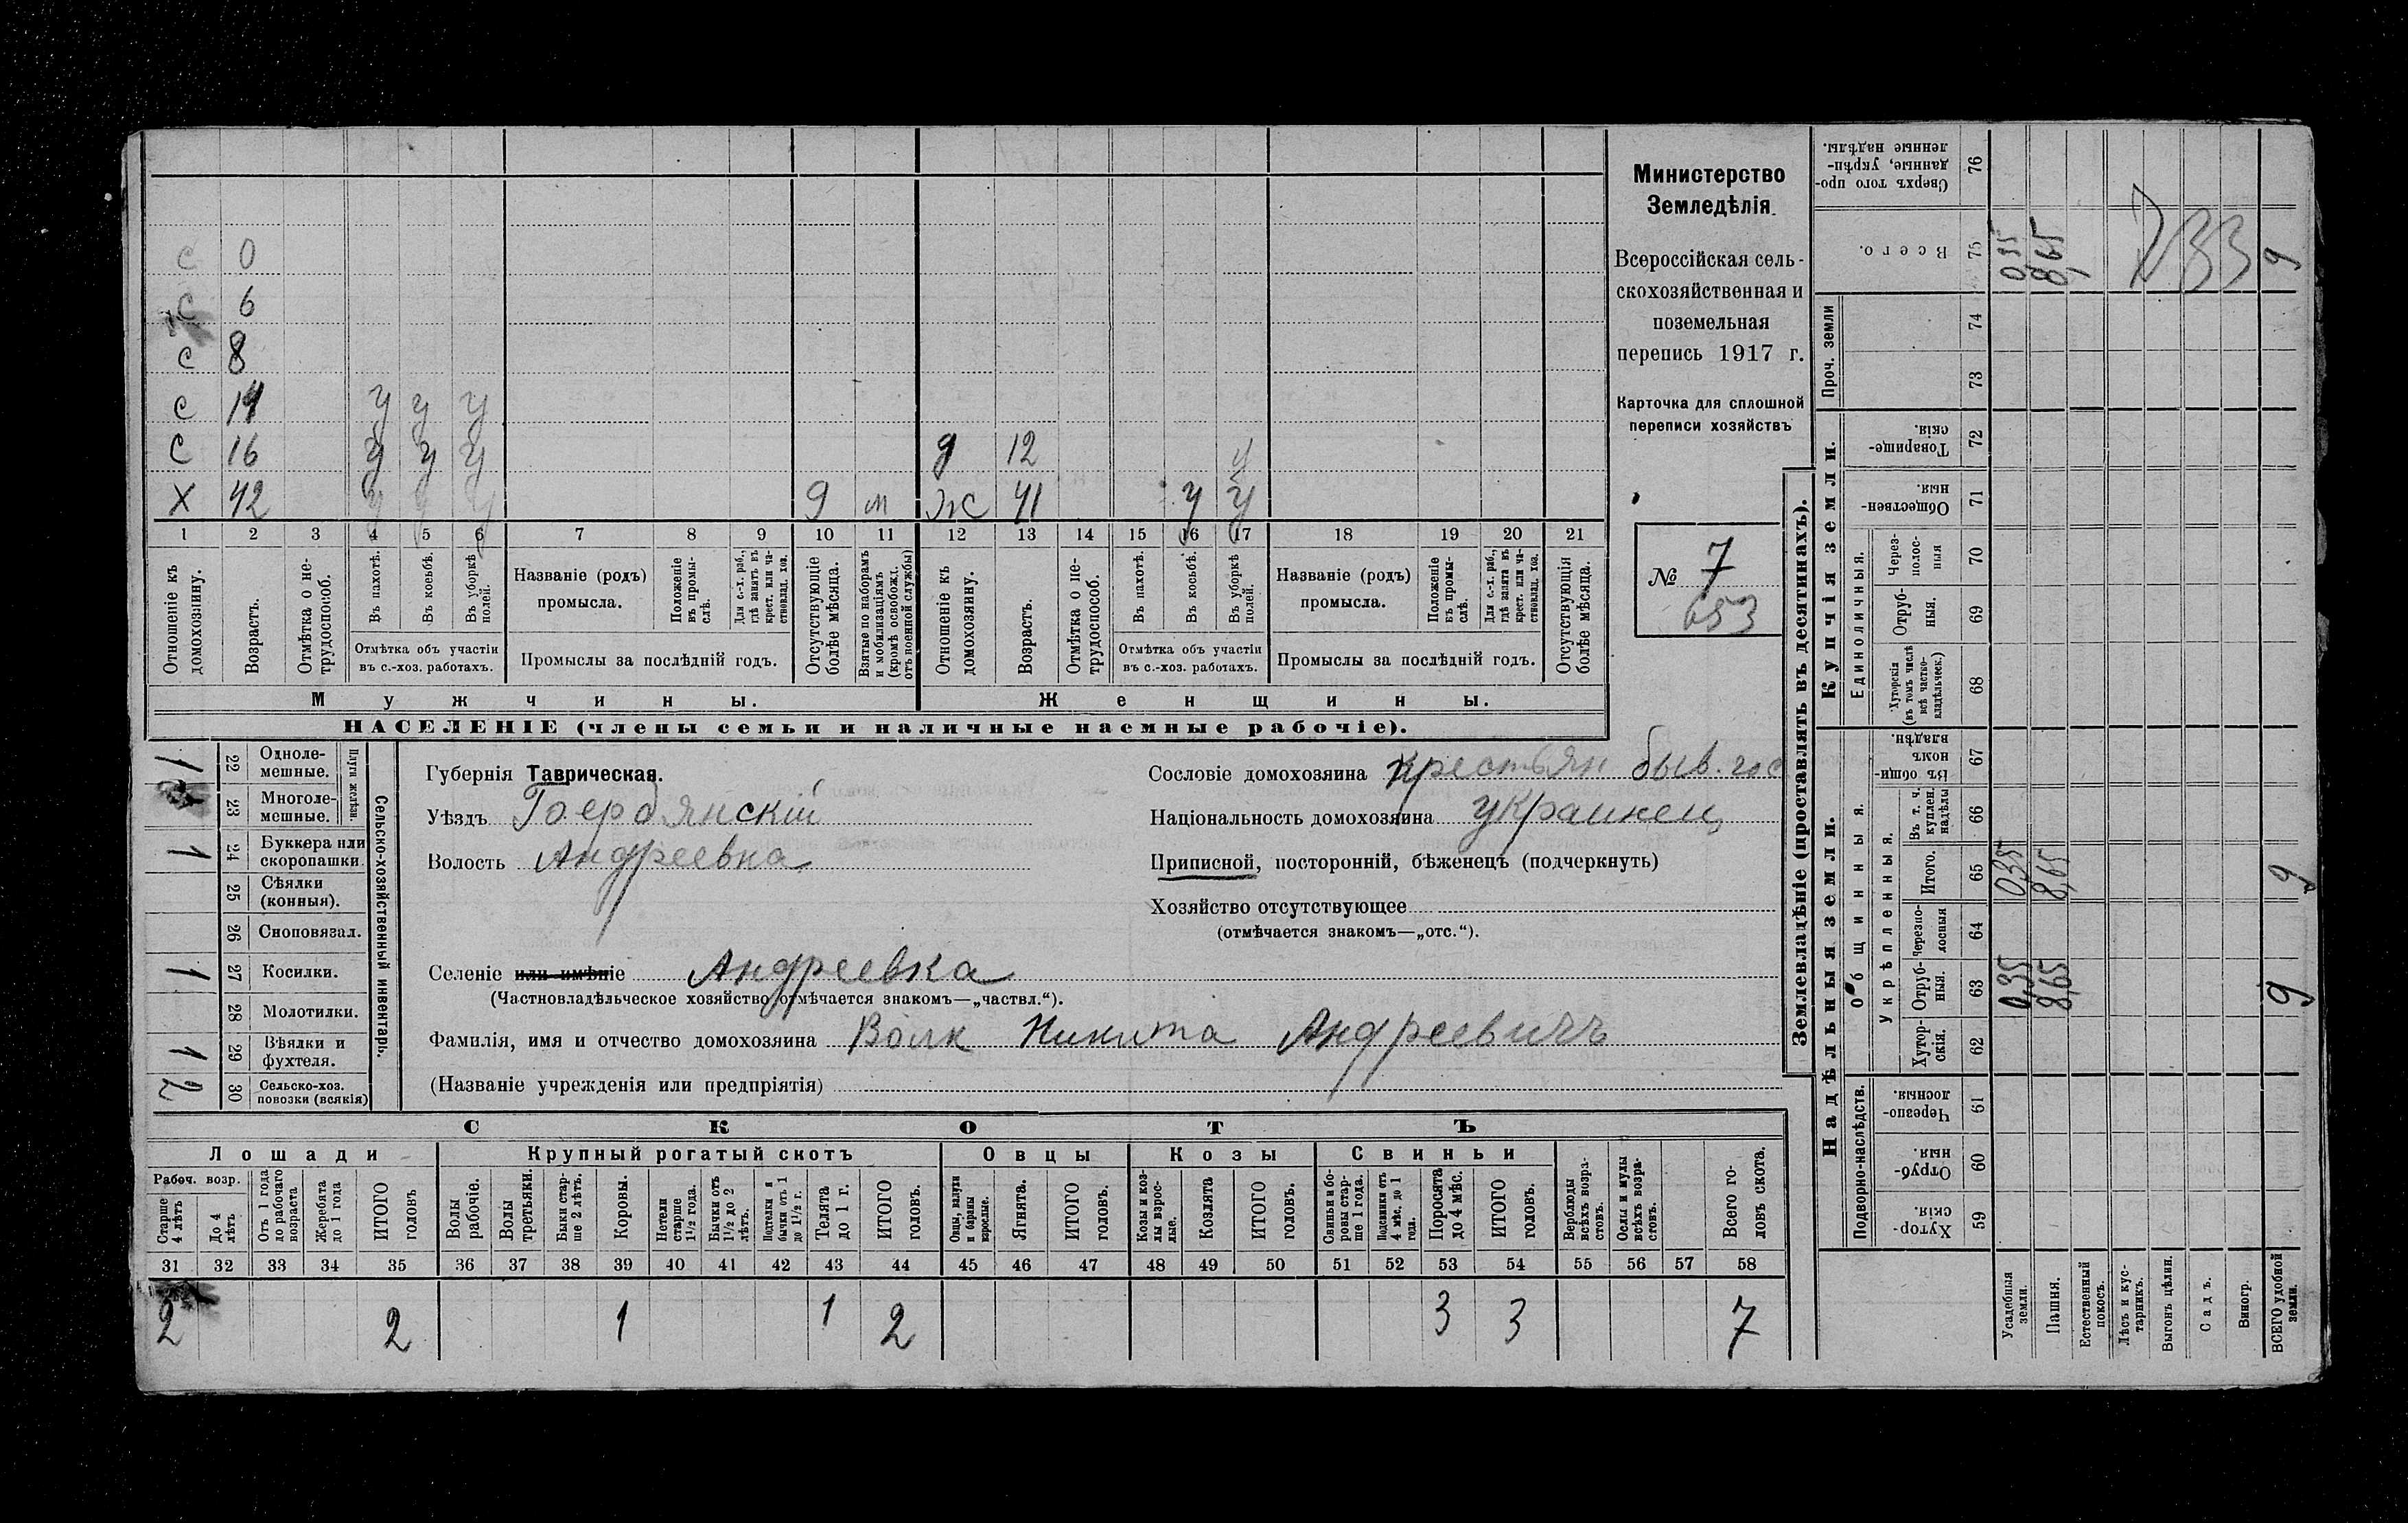 С 0
С 6
С 8
С 14 у у у
С 16 у у у д 12 у
Х 42 у у у 9 м Ж 41 у у
1 2 3 4 5 6 7 8 9 10 11 12 13 14 15 16 17 18 19 20 21
Отношеніе къ домохозяину.
Возрастъ.
Отмѣтка о не-трудоспособ.
Въ пахотѣ.
Въ косьбѣ.
Въ уборкѣ полей.
Отмѣтка объ участіи
въ с.-хоз. работахъ.
Названіе (родъ)
промысла.
Положеніе въ промы-слѣ.
Для с.-х. раб., гдѣ занятъ въ крест. или ча-стновлад. хоз.
Промыслы за послѣдній годъ.
Отсутствующіе болѣе мѣсяца.
Взятые по наборамъ и мобилизаціямъ (кромѣ освобожд. отъ военной службы)
Отношеніе къ домохозяину.
Возрастъ.
Отмѣтка о не-трудоспособ.
Въ пахотѣ.
Въ косьбѣ.
Въ уборкѣ полей.
Отмѣтка объ участіи
въ с.-хоз. работахъ.
Названіе (родъ)
промысла.
Положеніе въ промы-слѣ.
Для с.-х. раб., гдѣ занята въ крест. или ча-стновлад. хоз.
Промыслы за послѣдній годъ.
Отсутствующія болѣе мѣсяца.
Мужчины. Женщины.
НАСЕЛЕНІЕ (члены семьи и наличные наемные рабочіе).
Министерство
Земледѣлія
Всероссійская сель-
скохозяйственная и
поземельная
перепись 1917 г.
Карточка для сплошной
переписи хозяйствъ
№ 7
653
Сельско-хозяйственный инвентарь.
Плуги желѣзн.
1 22 Одноле-мешные.
23 Многоле-мешные.
1 24 Буккера или скоропашки.
25 Сѣялки (конныя).
26 Сноповязал.
1 27 Косилки.
28 Молотилки.
1 29 Вѣялки и фухтеля.
2 30 Сельско-хоз. повозки (всякія)
Губернія Таврическая.
Уѣздъ Бердянскій
Волость Андреевка
Селеніе или имѣніе Андреевка
(Частновладѣльческое хозяйство отмѣчается знакомъ—„частвл.“).
Фамилія, имя и отчество домохозяина Волк Никита Андреевичъ
(Названіе учрежденія или предпріятія)
Сословіе домохозяина крестьян быв. гос
Національность домохозяина украинец
Приписной, посторонній, бѣженецъ (подчеркнуть)
Хозяйство отсутствующее
(отмѣчается знакомъ—„отс.“).
СКОТЪ
Лошади Крупный рогатый скотъ Овцы Козы Свиньи
Рабоч. возр.
Старше 4 лѣтъ
До 4 лѣтъ
Отъ 1 года до рабочаго возраста
Жеребята до 1 года
ИТОГО головъ
Волы рабочіе.
Волы третьяки.
Быки стар-ше 2 лѣтъ.
Коровы.
Нетели старше 1½ года.
Бычки отъ 1½ до 2 лѣтъ.
Подтелки и бычки отъ 1 до 1½ г.
Телята до 1 г.
ИТОГО головъ.
Овцы, валухи и бараны взрослые.
Ягнята.
ИТОГО головъ.
Козы и коз-лы взрос-лые.
Козлята
ИТОГО головъ.
Свиньи и бо-ровы стар-ше 1 года.
Подсвинки отъ 4 мѣс. до 1 года.
Поросята до 4 мѣс.
ИТОГО головъ.
Верблюды всѣхъ возра-стовъ.
Ослы и мулы всѣхъ возра-стовъ.
Всего го-ловъ скота.
31 32 33 34 35 36 37 38 39 40 41 42 43 44 45 46 47 48 49 50 51 52 53 54 55 56 57 58
2 2 1 1 2 3 3 7
Землевладѣніе (проставлять въ десятинахъ).
Купчія земли.
Надѣльныя земли.
Сверхъ того про-данные, укрѣп-ленные надѣлы. 76
Всего. 75 0 35 8,65 9
Проч. земли 74
73
Товарище-скія. 72
Обществен-ныя. 71
Единоличныя.
Через-полос-ныя 70
Отруб-ныя. 69
Хуторскія (въ томъ числѣ всѣ частно-владѣльческ.) 68
Общинныя.
Въ общи-номъ владѣн. 67
Укрѣпленныя.
Въ т. ч. куплен. надѣлы 66
Итого. 65 035 8,65 9
Черезпо-лосныя 64
Отруб-ныя. 63 0,35 8,65 9
Хутор-скія. 62
Подворно-наслѣдств.
Черезпо-лосныя. 61
Отруб-ныя. 60
Хутор-скія. 59
Усадебныя земли.
Пашня.
Естественный покосъ.
Лѣсъ и кус-тарникъ.
Выгонъ цѣлин.
Садъ.
Виногр.
ВСЕГО удобной земли.